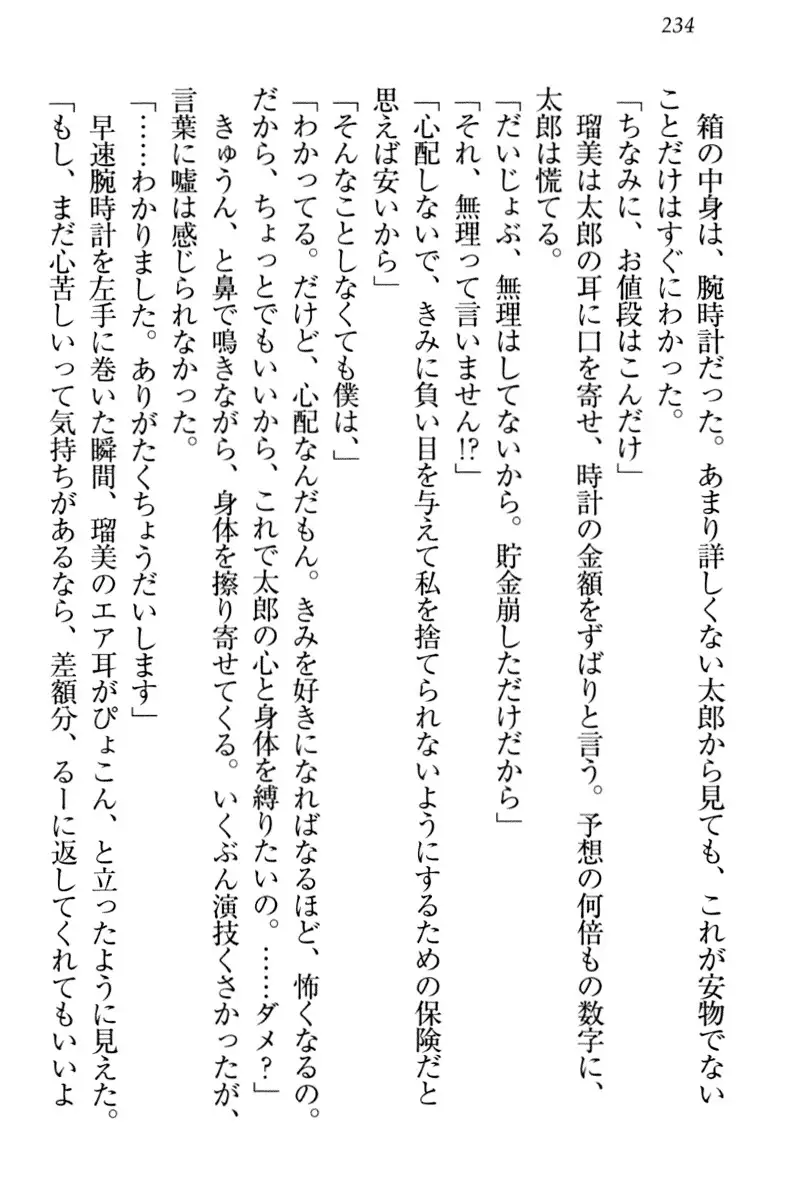 234
箱の中身は、腕時計だった。あまり詳しくない太郎から見ても、これが安物でない
ことだけはすぐにわかった。
「ちなみに、お値段はこんだけ」
瑠美は太郎の耳に口を寄せ、時計の金額をずばりと言う。予想の何倍もの数字に、
太郎は慌てる。
「だいじょぶ、無理はしてないから。貯金崩しただけだから」
「それ、無理って言いません!?」
「心配しないで、きみに負い目を与えて私を捨てられないようにするための保険だと
思えば安いから」
「そんなことしなくても僕は、」
「わかってる。だけど、心配なんだもん。きみを好きになればなるほど、怖くなるの。
だから、ちょっとでもいいから、これで太郎の心と身体を縛りたいの。……ダメ？」
きゅうん、と鼻で鳴きながら、身体を擦り寄せてくる。いくぶん演技くさかったが、
言葉に嘘は感じられなかった。
「……わかりました。ありがたくちょうだいします」
早速腕時計を左手に巻いた瞬間、瑠美のエア耳がぴょこん、と立ったように見えた。
「もし、まだ心苦しいって気持ちがあるなら、差額分、るーに返してくれてもいいよ